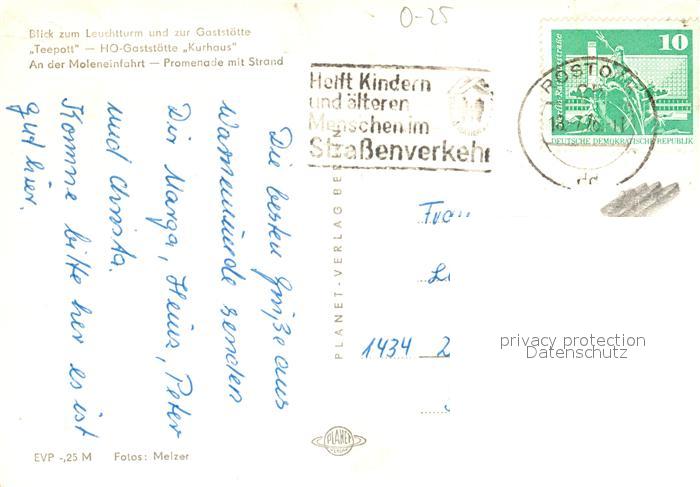 O-25
Blick zum Leuchtturm und zur Gaststätte
„Teepott" — HO-Gaststätte „Kurhaus"
An der Moleneinfahrt — Promenade mit Strand
Helft Kindern
und älteren
Menschen im
Straßenverkehr
10
DEUTSCHE DEMOKRATISCHE REPUBLIK
ROSTO
Die besten Grüße aus
Warnemünde senden
Dir Marga, Heinz, Peter
und Christa.
Komme bitte her es ist
gut hier.
PLANET-VERLAG BE
Frau
1434 2
privacy protection
Datenschutz
PLANET
VERLAG
EVP -,25 M Fotos: Melzer